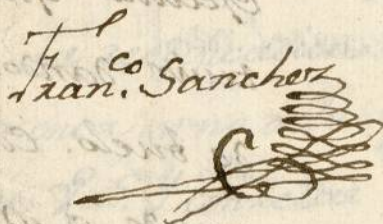 Fran.co Sanchez